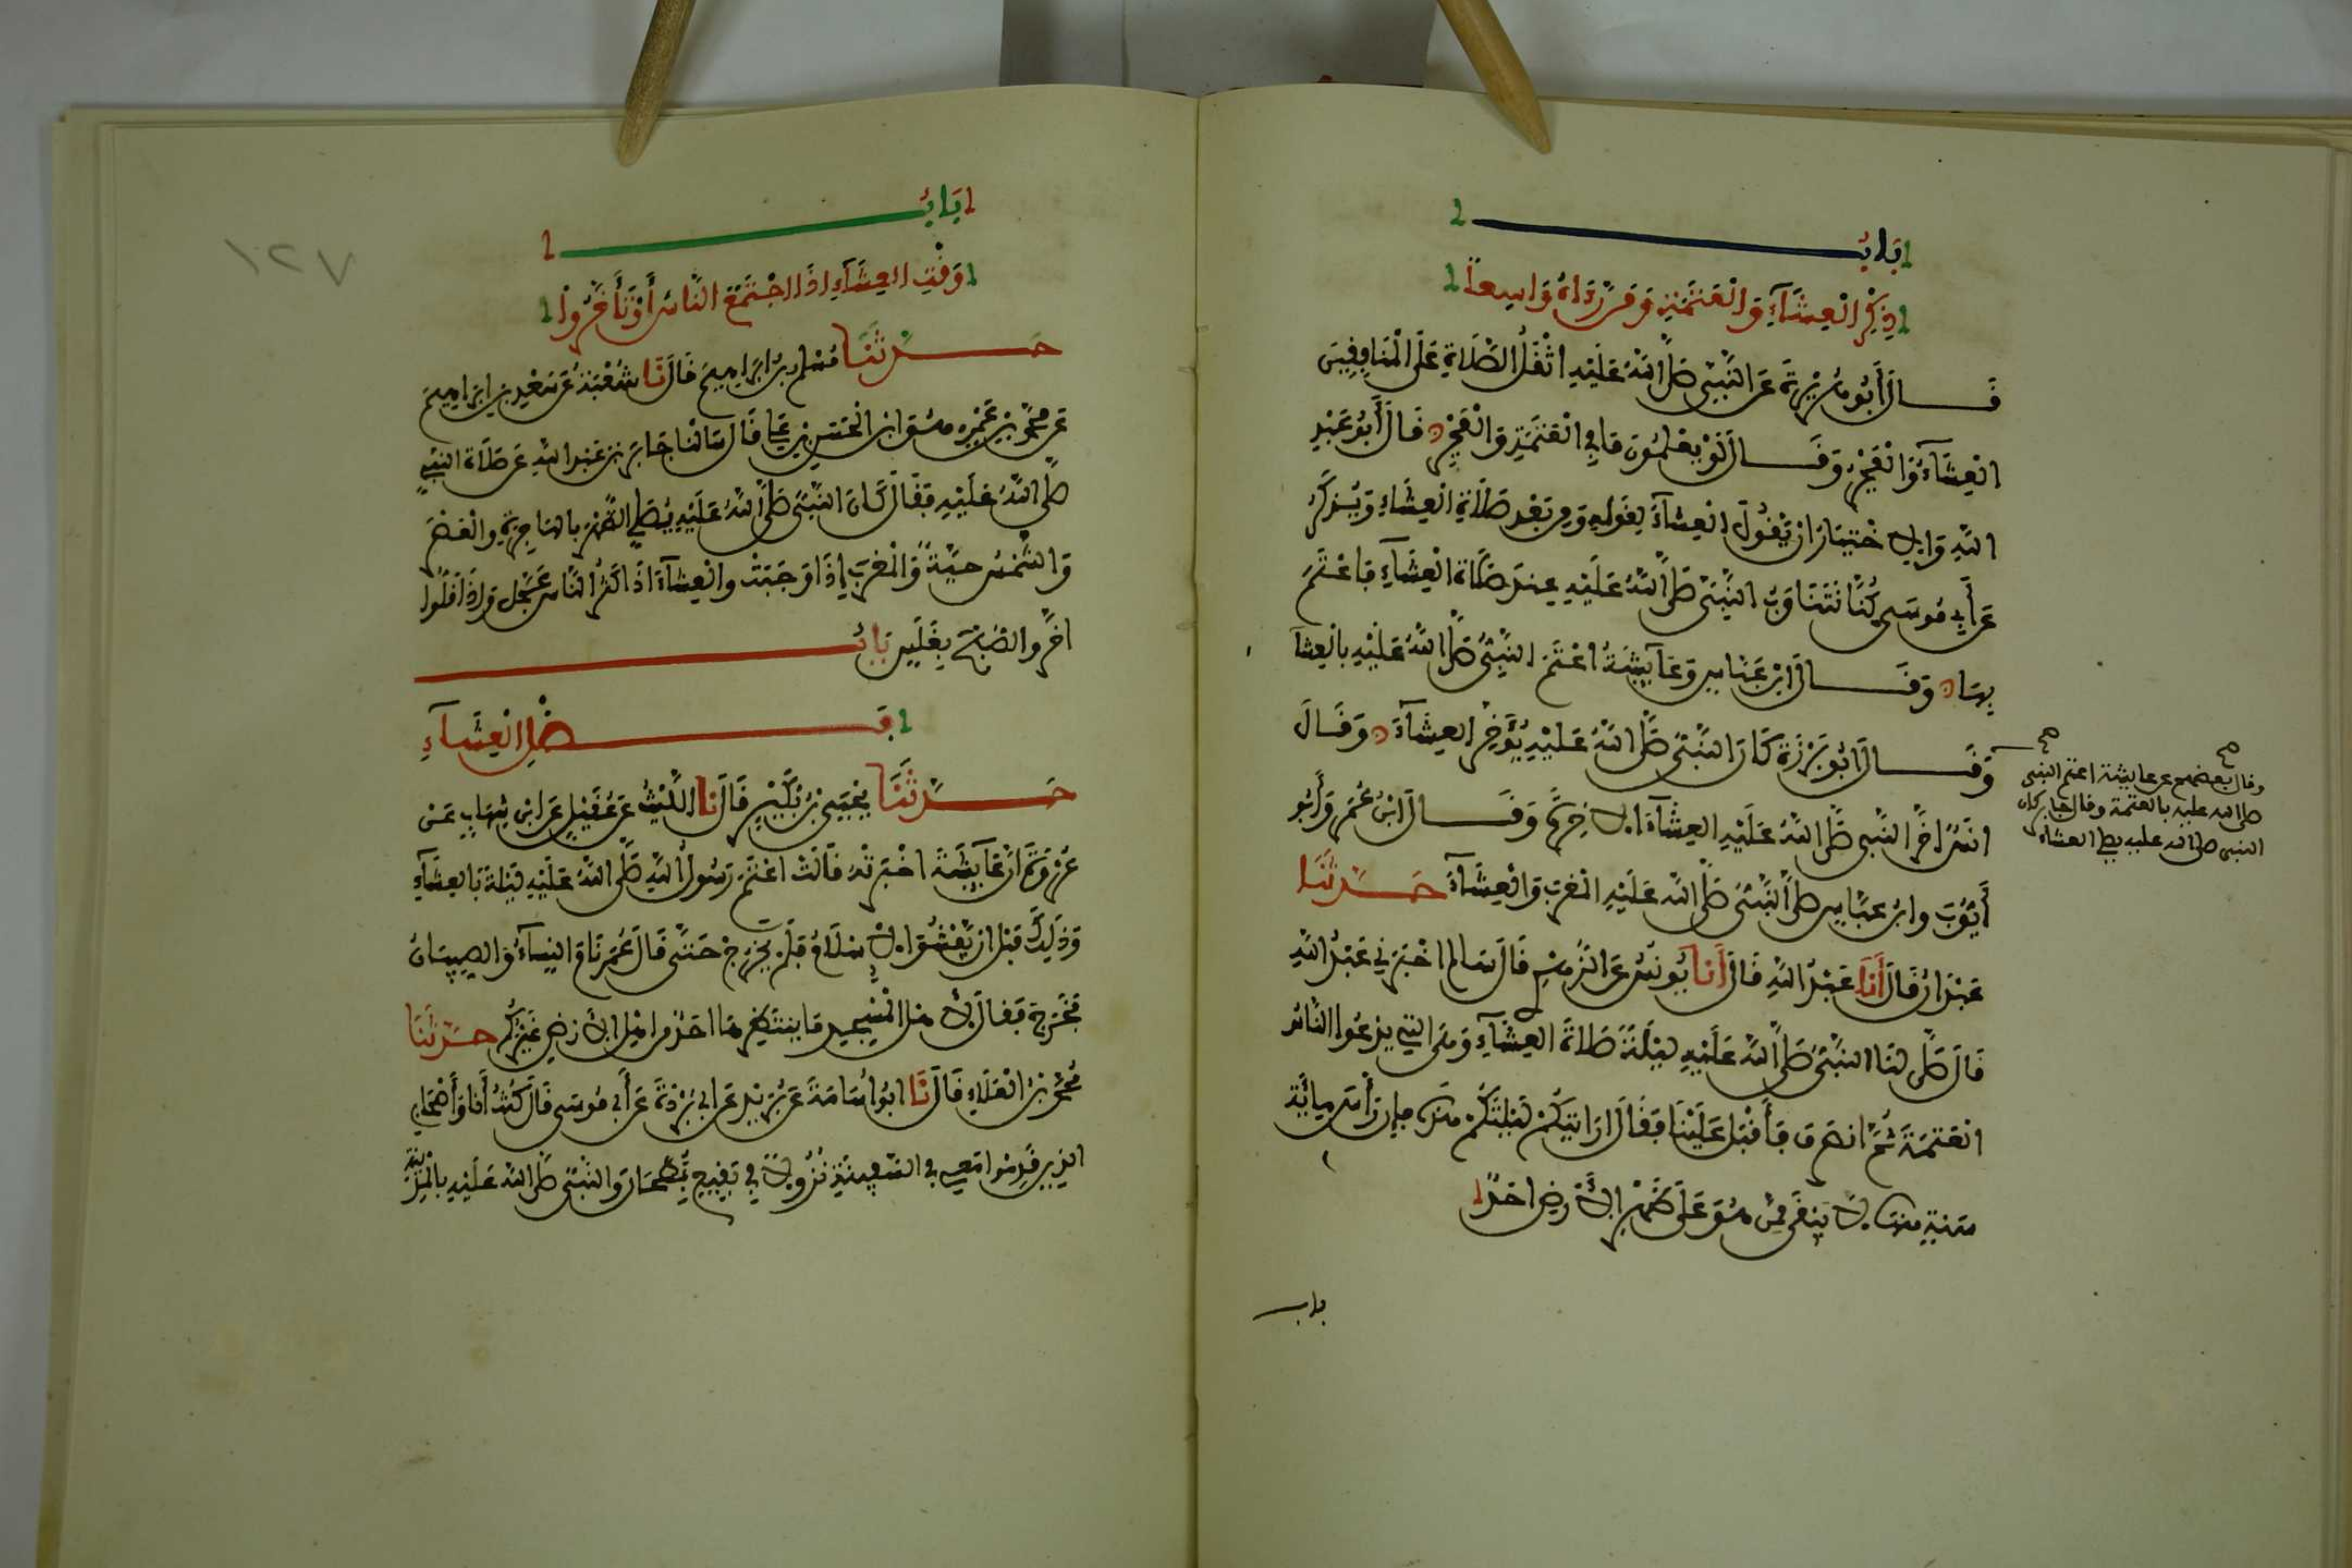 باب
ذكر العشاء والعتمة ومن رءاه واسعا
قال أبو هريرة عن النبي صلى الله عليه اثقل الصلاة على المنافقين
العشاء والفجر وقال لو يعلمون ما في العتمة والفجر قال أبو عبد
الله والاختيار ان يقول العشاء لقوله ومن بعد صلاة العشاء ويذكر
عن أبي موسى كنا نتناوب النبي صلى الله عليه عند صلاة العشاء فاعتم
بها وقال ابن عباس وعايشة اعتم النبي صلى الله عليه بالعشاء
وقال أبو برزة كان النبي صلى الله عليه يؤخر العشاء وقال
انس اخر النبي صلى الله عليه العشاء الاخرة وقال ابن عمر وأبو
أيوب وابن عباس صلى النبي صلى الله عليه المغرب والعشاء حدثنا
عبدان قال أنا عبد الله قال أنا يونس عن الزهري قال سالم اخبرني عبد الله
قال صلى لنا النبي صلى الله عليه ليلة صلاة العشاء وهي التي يدعوا الناس
العتمة ثم انصرف فأقبل علينا فقال ارايتكم ليلتكم هذه فإن رأس مائة
سنة منها لا يبقى ممن هو على ظهر الأرض احد
باب
وقال بعضهم عن عايشة اعتم النبي
صلى الله عليه بالعتمة وقال جابر كان
النبي صلى الله عليه يصلي العشاء
١٢٧
باب
وقت العشاء اذا اجتمع الناس أو تأخروا
حدثنا مسلم بن ابراهيم قال نا شعبة عن سعد بن ابراهيم
عن محمد بن عمرو هو ابن الحسن بن علي قال سالنا جابر بن عبد الله عن صلاة النبي
صلى الله عليه فقال كان النبي صلى الله عليه يصلي الظهر بالهاجرة والعصر
والشمس حية والمغرب إذا وجبت والعشاء اذا كثر الناس عجل وإذا قلوا
اخر والصبح بغلس باب
فضل العشاء
حدثنا يحيى بن بكير قال نا الليث عن عقيل عن ابن شهاب عن
عروة ان عايشة اخبرته قالت اعتم رسول الله صلى الله عليه ليلة بالعشاء
وذلك قبل ان يفشوا الإسلام فلم يخرج حتى قال عمر نام النساء والصبيان
فخرج فقال لأهل المسجد ما ينتظرها احد من اهل الأرض غيركم حدثنا
محمد بن العلاء قال نا ابو أسامة عن بريد عن ابي بردة عن أبي موسى قال كنت أنا وأصحابي
الذين قدموا معي في السفينة نزولا في بقيع بطحان والنبي صلى الله عليه بالمدينة